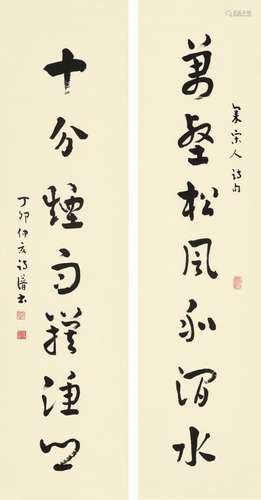 集宋人詩句
萬壑松風和澗水
十分煙雨簇漁鄉
丁卯仲夏